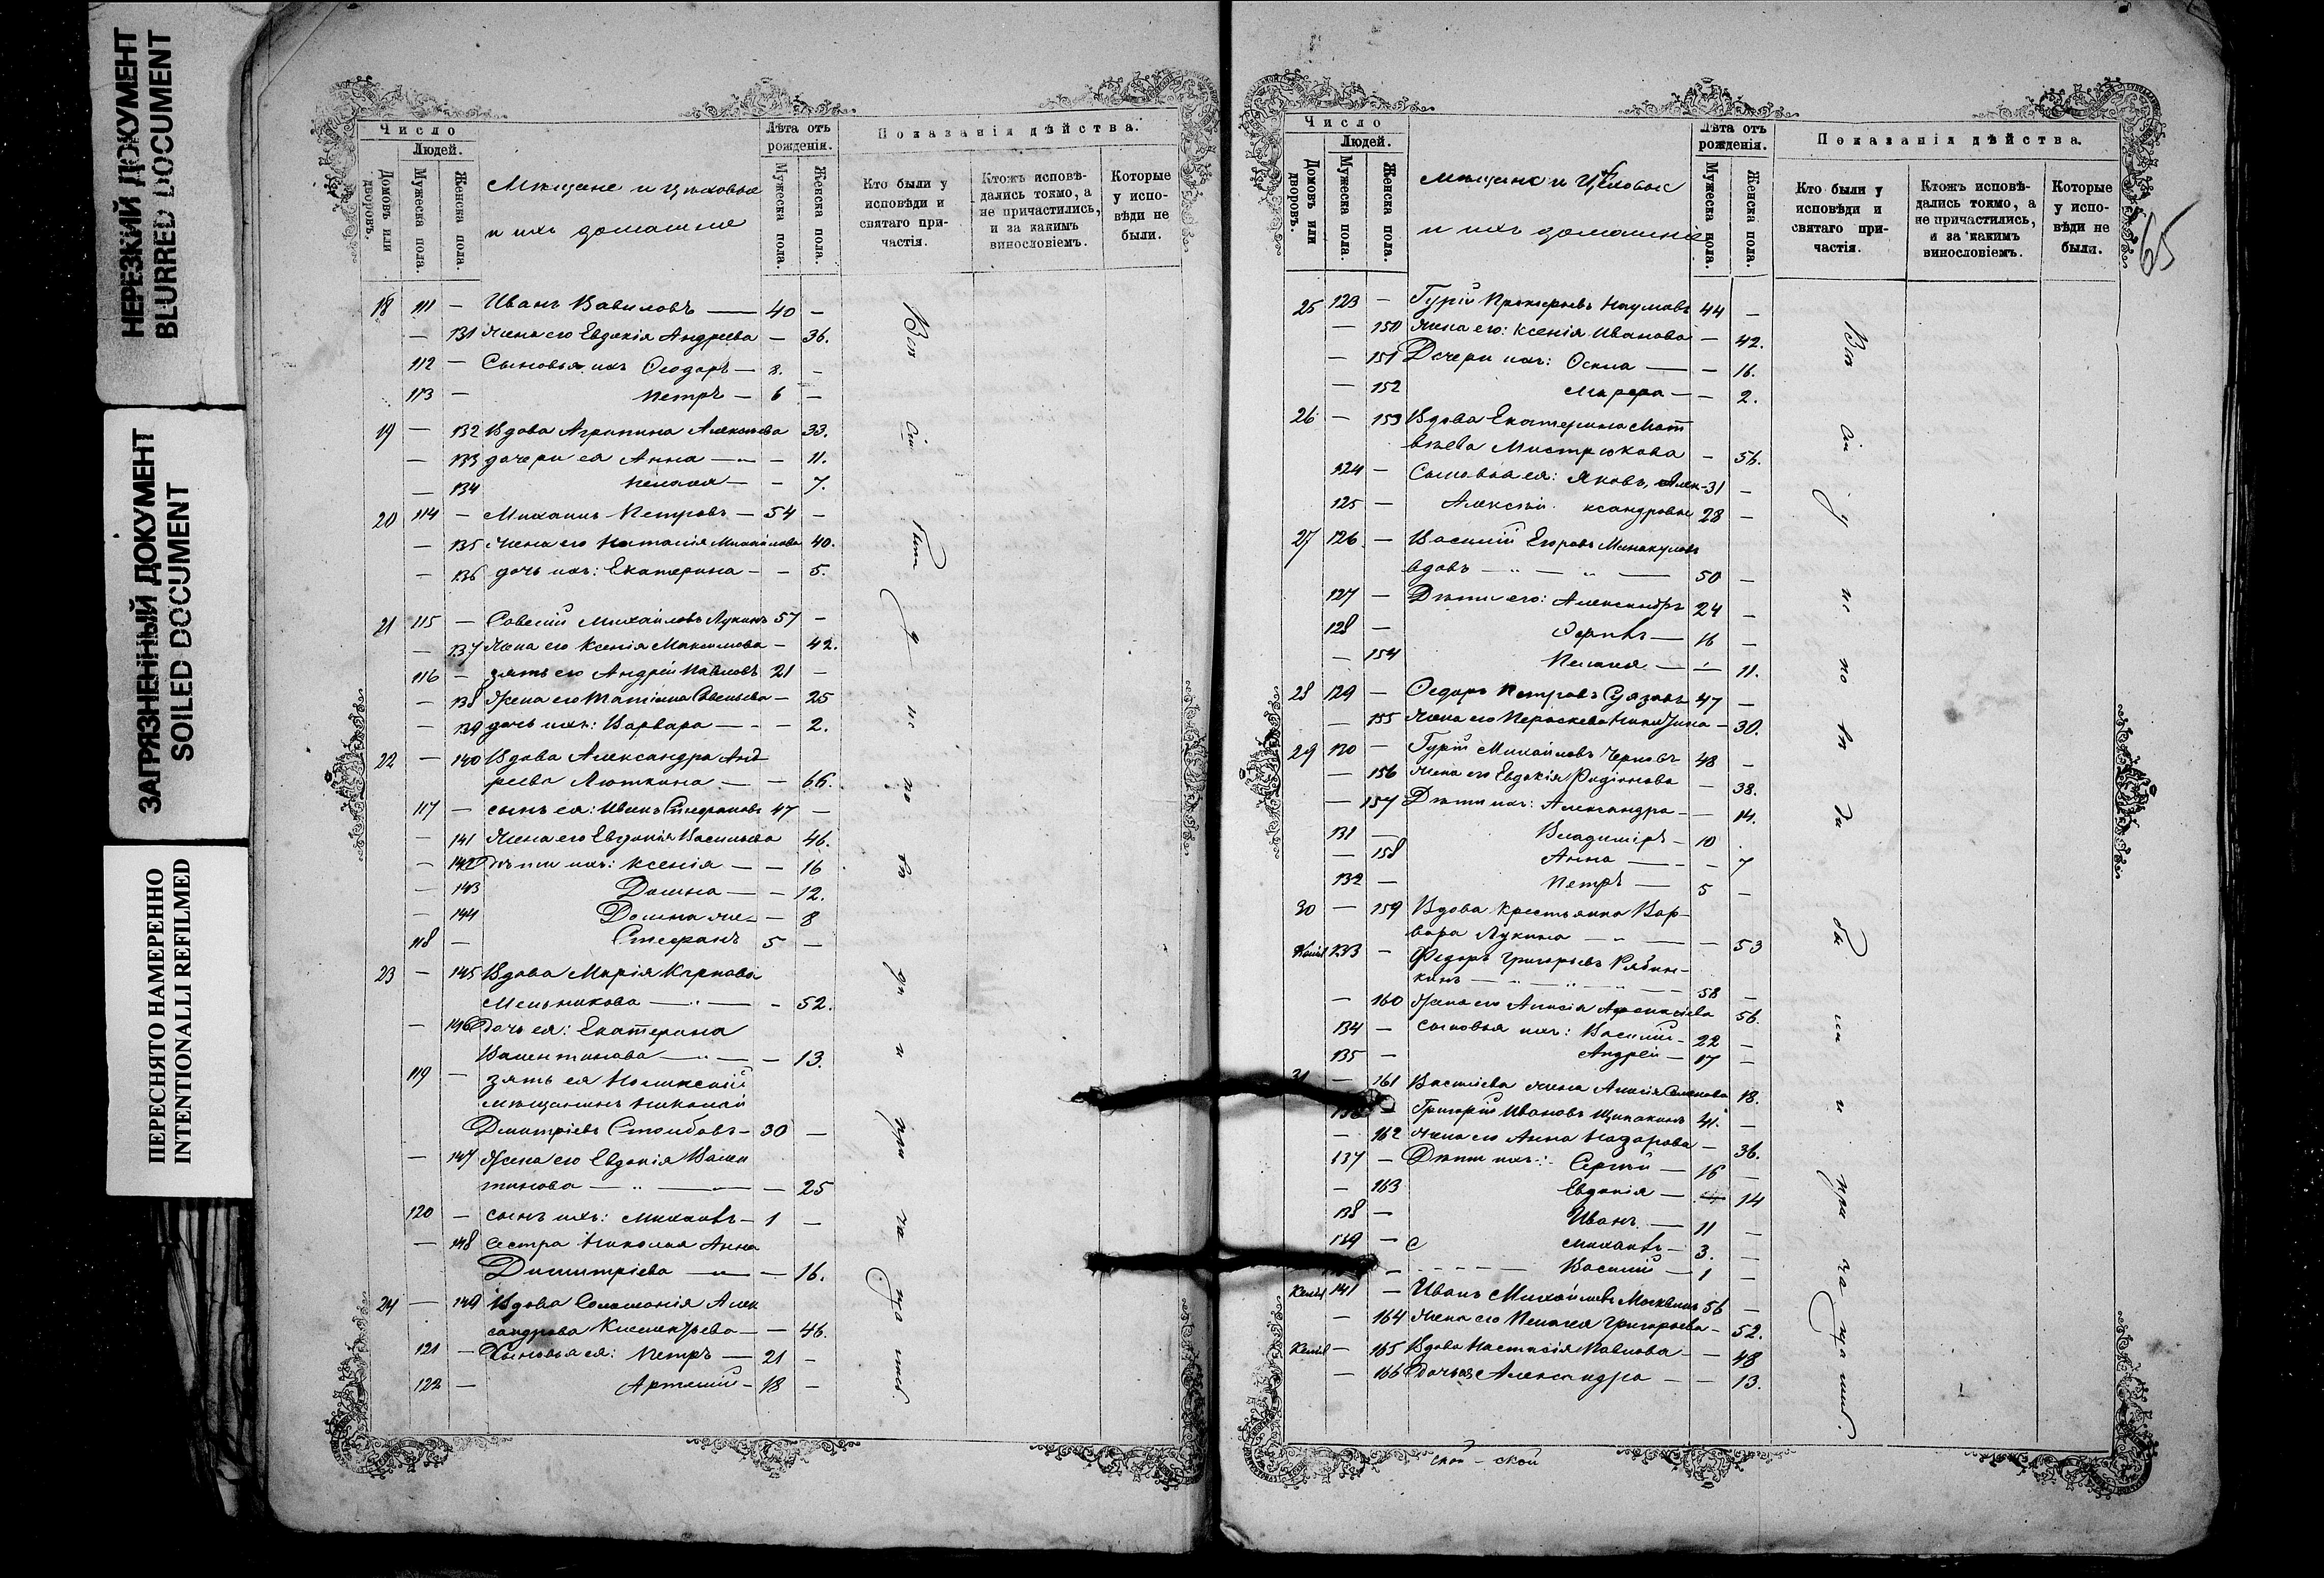 НЕРЕЗКИЙ ДОКУМЕНТ
BLURRED DOCUMENT
ЗАГРЯЗНЕННЫЙ ДОКУМЕНТ
SOILED DOCUMENT
ПЕРЕСНЯТО НАМЕРЕННО
INTENTIONALLI REFILMED
Число
Людей.
Домовъ или дворовъ.
Мужеска пола.
Женска пола.
Мѣщане и цѣховые
и ихъ домашніе
Лѣта отъ рожденія.
Мужеска пола.
Женска пола.
Показанія дѣйства.
Кто были у исповѣди и святаго причастія.
Ктожъ исповѣдались токмо, а не причастились, и за какимъ винословіемъ.
Которые у исповѣди не были.
18 111 — Иванъ Вавиловъ — 40 —
— 131 Жена его Евдокія Андреева — 36.
112 — Сыновья ихъ Ѳеодоръ — 8. —
113 — Петръ — 6 —
19 — 132 Вдова Агрипина Алексеева 33.
— 133 дочери ея Анна — — 11.
— 134 Пелагея — — 7.
20 114 — Михаилъ Петровъ — 54 —
— 135 Жена его Наталія Михайлова 40.
— 136 дочь ихъ: Екатерина — — 5.
21 115 — Савелій Михайловъ Лукинъ 57 —
— 137 Жена его Ксенія Максимова — 42.
116 — зять его Андрей Павловъ 21 —
— 138 Жена его Татіана Савельева — 25
— 139 дочь ихъ: Варвара — — 2.
22 — 140 Вдова Александра Анд
реева Люткина — — 66.
117 — сынъ ея: Иванъ Стефановъ 47 —
— 141 Жена его Евдокія Васильева 46.
— 142 Дѣти ихъ: Ксенія — — 16
— 143 Домна — — 12.
— 144 Домна же — — 8
118 — Стефанъ 5 —
23 — 145 Вдова Марія Карпова
Мельникова — — 52.
— 146 Дочь ея: Екатерина
Валентинова — — 13.
119 — зять ея
мѣщанинъ Николай
Дмитріевъ Столбовъ — 30 —
— 147 Жена его Евдокія Вален
тинова — — 25
120 — сынъ ихъ: Михаилъ — 1 —
— 148 Сестра Николая Анна
Димитріева — — 16.
24 — 149 Вдова Соломонія Алек
сандрова — — 46.
121 — Сыновья ея: Петръ — 21 —
122 — Артемій — 18 —
65
Число
Людей.
Домовъ или дворовъ.
Мужеска пола.
Женска пола.
Мѣщане и Цѣховые
и ихъ домашніе
Лѣта отъ рожденія.
Мужеска пола.
Женска пола.
Показанія дѣйства.
Кто были у исповѣди и святаго причастія.
Ктожъ исповѣдались токмо, а не причастились, и за какимъ винословіемъ.
Которые у исповѣди не были.
25 123 — Гурій Прокофьевъ Наумовъ 44 —
— 150 Жена его: Ксенія Иванова — 42.
— 151 Дочери ихъ: — — 16.
— 152 Марфа — — 2.
26 — 153 Вдова Екатерина Мат
вѣева Мистрюкова — 56.
124 — Сыновья ея: Яковъ, Алек- 31 —
125 — Алексѣй ксандровы 28 —
27 126 — Василій Егоровъ
вдовъ — — 50 —
127 — Дѣти его: Александръ 24 —
128 — 16 —
— 154 Пелагея — — 11.
28 129 — Ѳедоръ Петровъ 47 —
— 155 Жена его Параскева Никитина — 30.
29 130 — Гурій Михайловъ Черновъ 48 —
— 156 Жена его Евдокія Родіонова — 38.
— 157 Дѣти ихъ: Александра — — 14.
131 — Владиміръ — 10
— 158 Анна — — 7
132 — Петръ — 5 —
30 — 159 Вдова крестьянка Вар-
вара Лукина — — 53
133 — Ѳедоръ Григорьевъ Рябин-
кинъ — — 58 —
— 160 Жена его Анисія Аѳанасіева 56.
134 — сыновья ихъ: Василій — 22 —
135 — Андрей — 17 —
31 — 161 Васильева жена Анисія Семенова 18.
136 — Григорій Ивановъ 41. —
— 162 Жена его Анна Назарова — 36.
137 — Дѣти ихъ: Сергѣй — 16 —
— 163 Евдокія — 14
138 — Иванъ — 11 —
139 — Михаилъ — 3. —
— Василій — 1 —
141 — Иванъ Михайловъ Москвинъ 56 —
— 164 Жена его Пелагея Григорьева — 52.
— 165 Вдова Настасія Павлова — — 48
— 166 Дочь ея Александра — — 13.